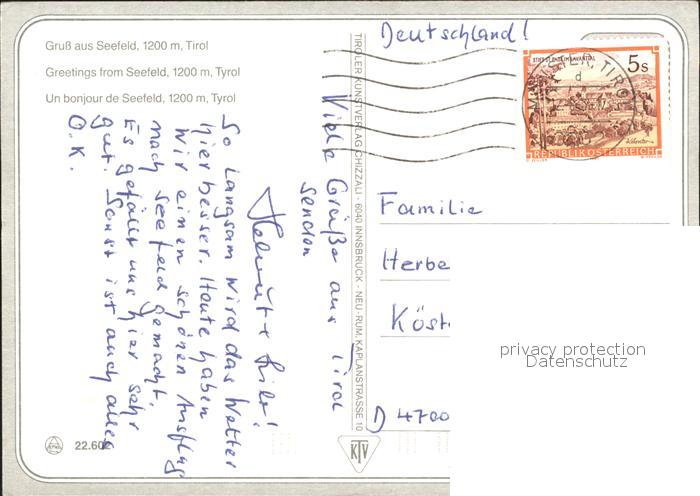 Gruß aus Seefeld, 1200 m, Tirol
Greetings from Seefeld, 1200 m, Tyrol
Un bonjour de Seefeld, 1200 m, Tyrol
Deutschland!
5s
REPUBLIK ÖSTERREICH
TIROLER KUNSTVERLAG CHIZZALI - 6040 INNSBRUCK - NEU-RUM, KAPLANSTRASSE 10
Viele Grüße aus Tirol
senden
Helmut +
So langsam wird das Wetter
hier besser. Heute haben
wir einen schönen Ausflug
nach Seefeld gemacht.
Es gefällt uns hier sehr
gut. Sonst ist auch alles
O.K.
Familie
Herbe
Köst
D 4700
22.602
KTV
privacy protection
Datenschutz